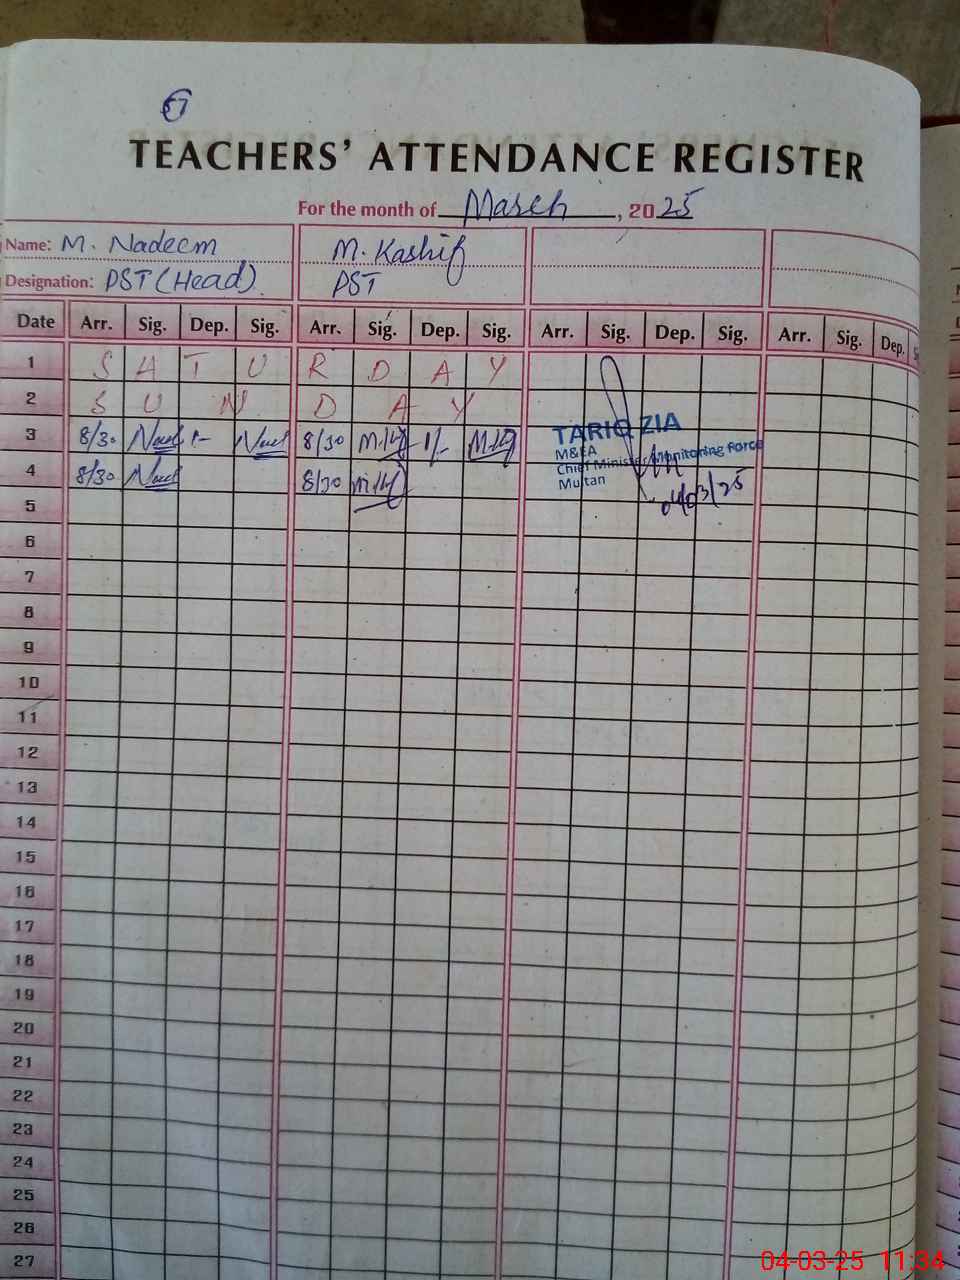 57
TEACHERS' ATTENDANCE REGISTER
For the month of March, 2025
Name: M. Nadeem M. Kashif
Designation: PST (Head) PST
Date Arr. Sig. Dep. Sig. Arr. Sig. Dep. Sig. Arr. Sig. Dep. Sig. Arr. Sig. Dep.
1 S A T U R D A Y
2 S U N D A Y
3 8/30 1- 8/30 1/-
TARIQ ZIA
M&EA
Chief Minister Monitoring Force
Multan
04/03/25
4 8/30 8/30
5
6
7
8
9
10
11
12
13
14
15
16
17
18
19
20
21
22
23
24
25
26
27
04-03-25 11:34